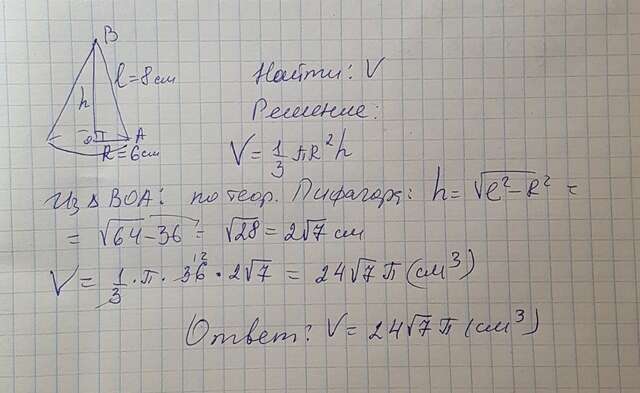 B
l = 8 см
h
O
A
R = 6 см
Найти: V
Решение:
V = 1/3 πR²h
Из △ BOA: по теор. Пифагора: h = √(l² − R²) =
= √(64 − 36) = √28 = 2√7 см
V = 1/3 · π · 36 12 · 2√7 = 24√7 π (см³)
Ответ: V = 24√7 π (см³)